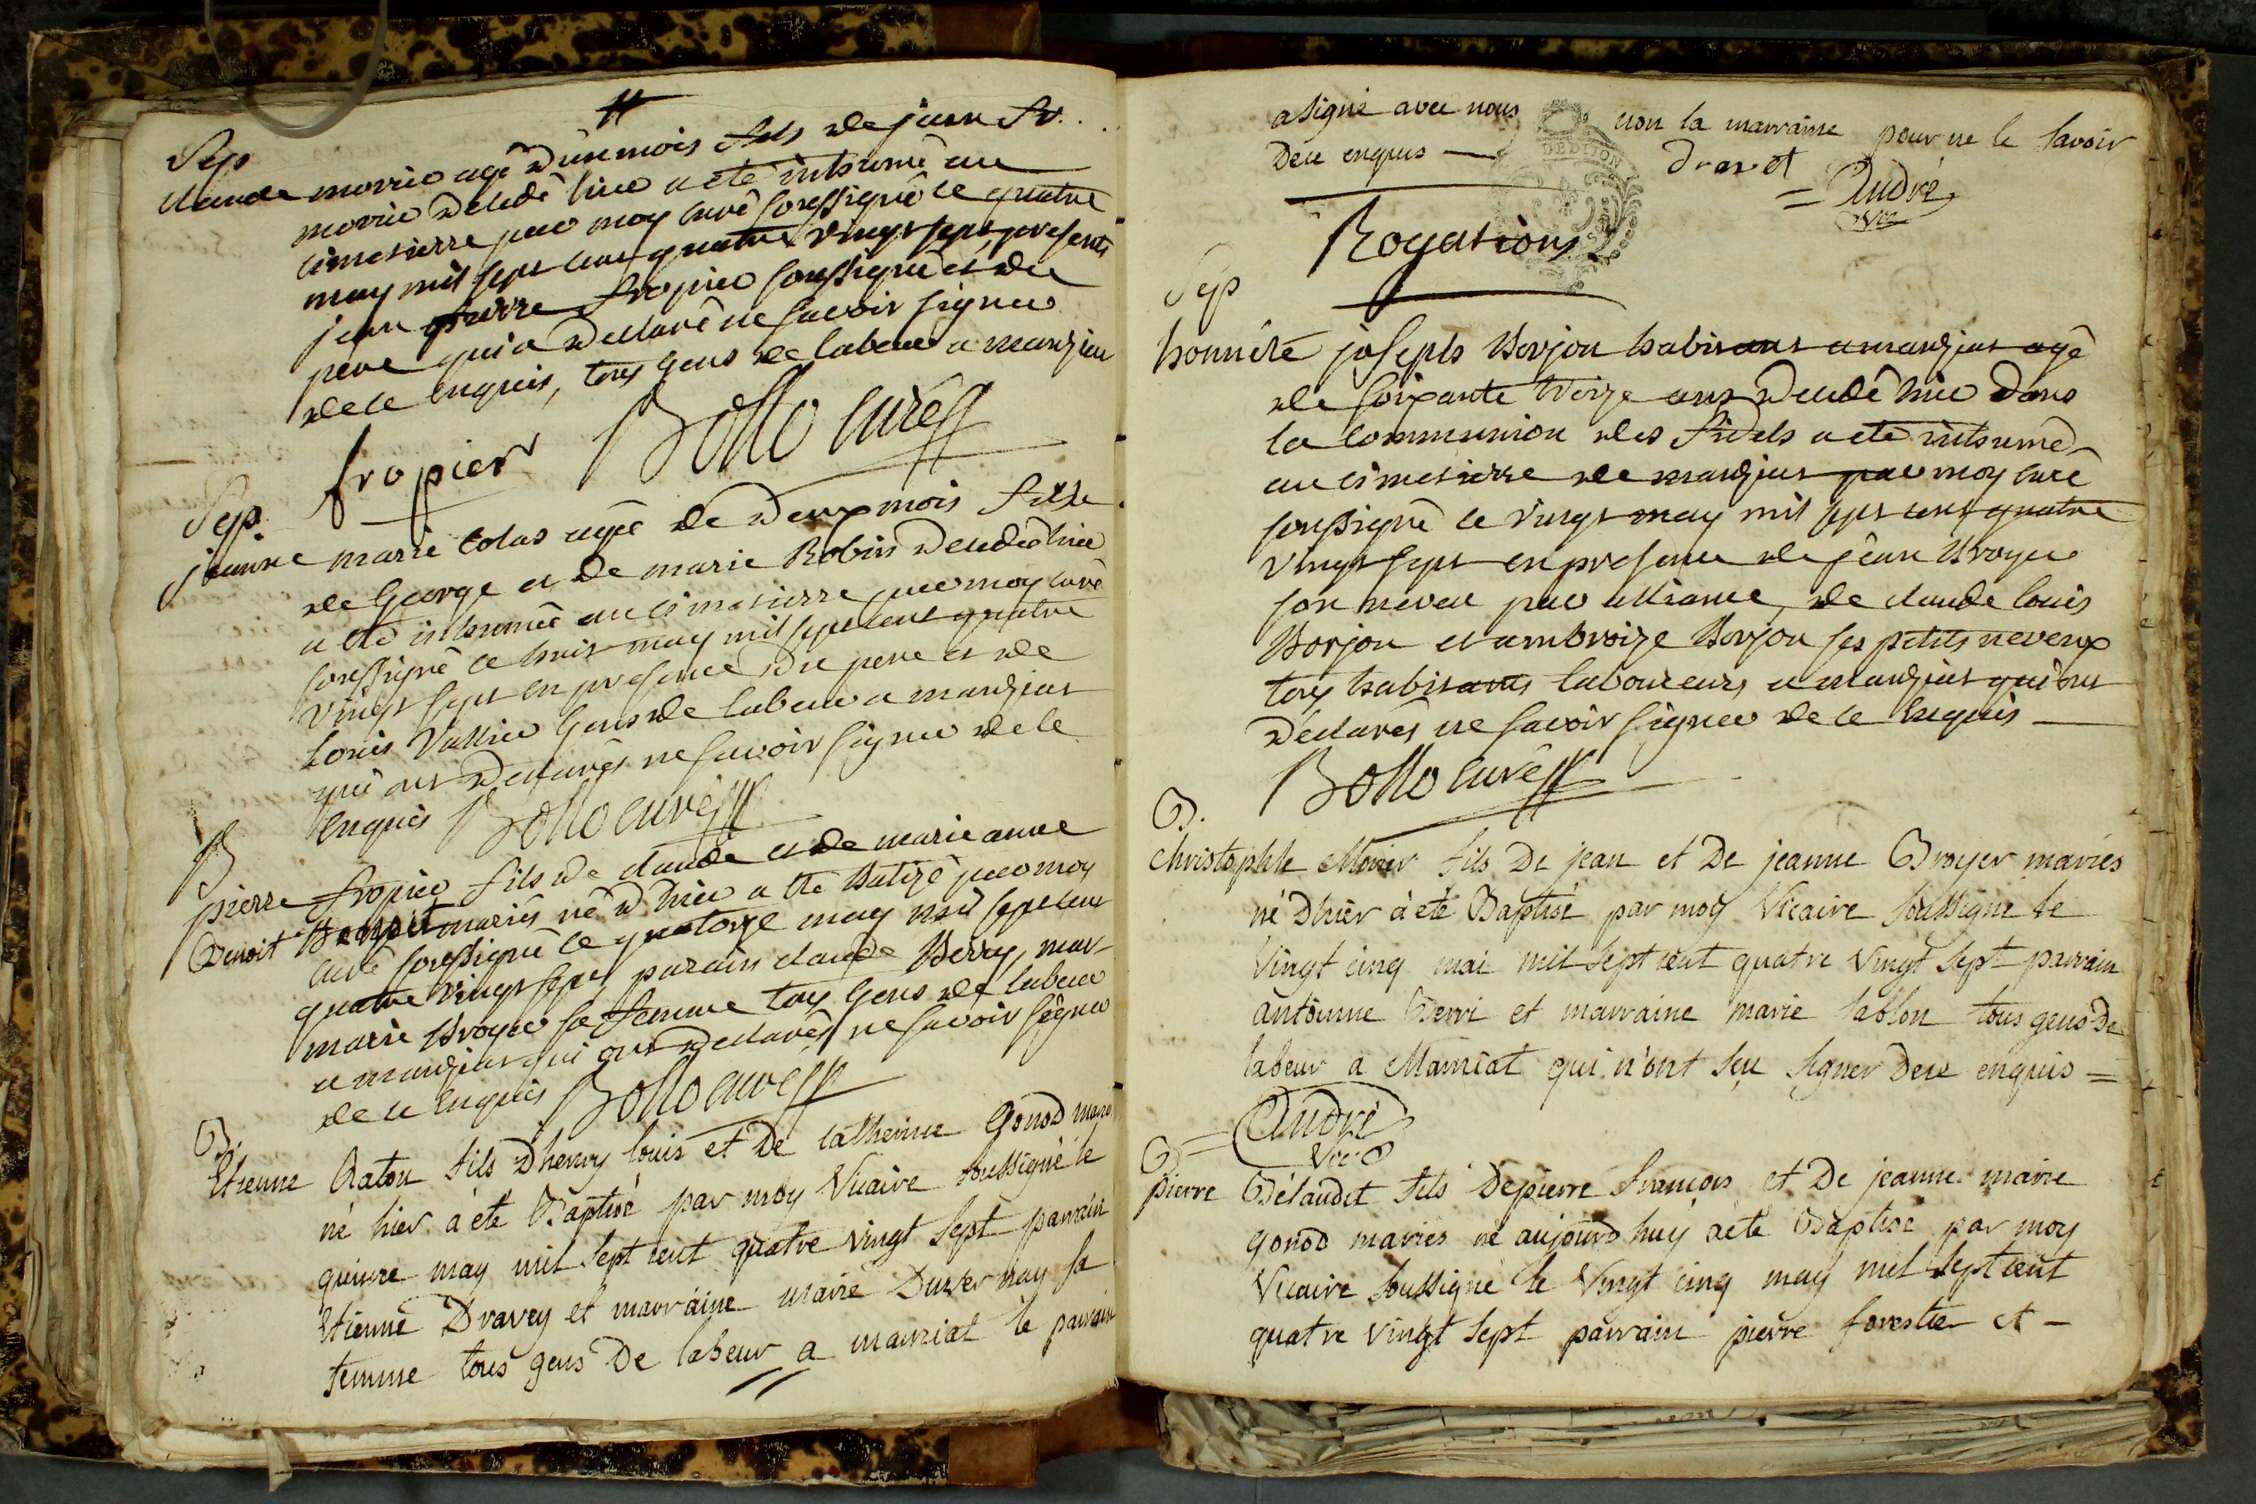 Sep
claude morier agé d'un mois fils de jean fr.
morier decedé hier a eté inhumé au
cimetierre par moy curé soussigné le quatre
may mil sept cent quatre vingt sept presents
jean pierre fropier soussigné et du
pere qui a declaré ne savoir signer
de ce enquis, tous gens de labeur a manziat
fropier Bollo curé
Sep.
jeanne marie colas agée de deux mois fille
de George et de marie Robin decedée hier
a eté inhumée au cimetierre par moy curé
soussigné le huit may mil sept cent quatre
vingt sept en presence du pere et de
Louis Vallier gens de labeur a manziat
qui ont declarés ne savoir signer de ce
enquis Bollo curé
B
pierre fropier fils de claude et de marie anne
Benoit mariés né d'hier a eté batizé par moy
curé soussigné le quatorze may mil sept cent
quatre vingt sept parain claude Berry, mar-
marie Broyer sa femme tous gens de labeur
a manziat qui ont declarés ne savoir signer
de ce enquis Bollo curé
B.
Etienne Raton fils d'henry louis et De catherine Gonod mariés
né hier a eté Baptisé par moy Vicaire soussigné le
quinze may mil sept cent quatre vingt sept parrain
Etienne Dravey et marraine marie Duvernay sa
femme tous gens De labeur a manziat le parrain
a signé avec nous non la marraine pour ne le savoir
Dece enquis — dravet
= André
Vic
DE DIJON
Rogations
Sep
honnête joseph Borjon habitant a manziat agé
de soixante treize ans decedé hier dans
la communion des fidels a eté inhumé
au cimetierre de manziat par moy curé
soussigné le vingt may mil sept cent quatre
vingt sept en presence de jean Broyer
son neveu par alliance, de claude louis
Borjon et ambroize Borjon ses petits neveux
tous habitants laboureurs a manziat qui ont
declarés ne savoir signer de ce enquis —
Bollo curé
B.
christophle Morier fils De jean et De jeanne Broyer mariés
né D'hier a eté Baptisé par moy Vicaire soussigné le
vingt cinq mai mil sept cent quatre vingt sept parrain
antoinne Berri et marraine marie sablon tous gens De
labeur a Manziat qui n'ont sçu signer Dece enquis =
= André
Vic
B
pierre Bélaudet fils De pierre françois et De jeanne marie
gonod mariés né aujourd'huy a eté Baptisé par moy
Vicaire soussigné le vingt cinq may mil sept cent
quatre vingt sept parrain pierre forestier et —